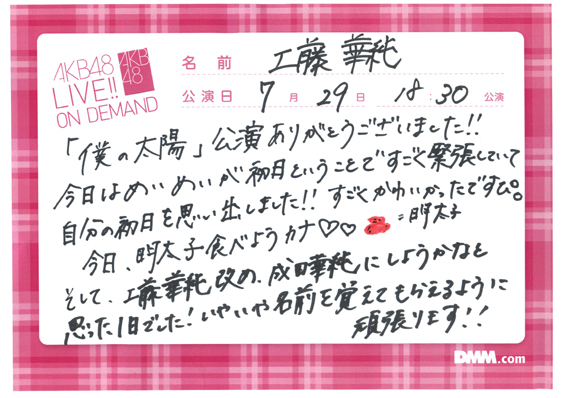 AKB48
LIVE!!
ON DEMAND
AKB
48
名前 工藤 華純
公演日 7月 29日 18:30 公演
「僕の太陽」公演ありがとうございました!!
今日はめいめいが初日ということですごく緊張していて
自分の初日を思い出しました!! すごくかわいかったですぴ。
今日、明太子食べようカナ♡♡ =明太子
そして、工藤華純改め、成田華純にしようかなと
思った1日でした!いやいや名前を覚えてもらえるように
頑張ります!!
DMM.com